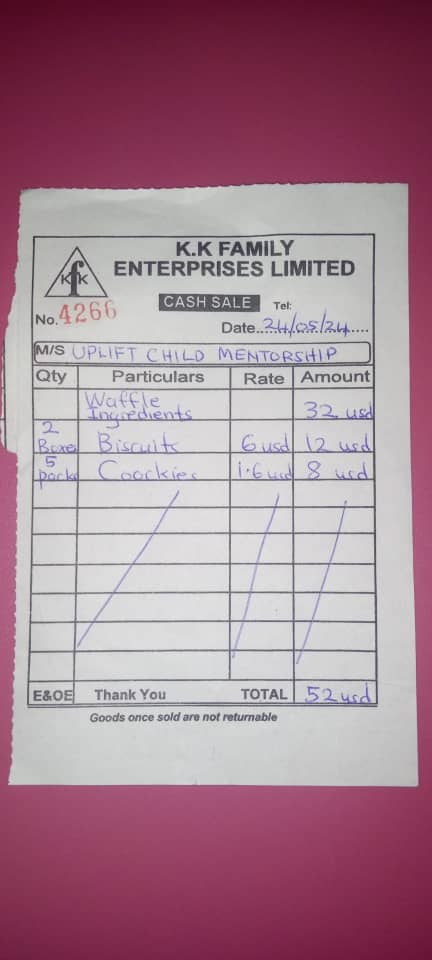 K.K FAMILY
ENTERPRISES LIMITED
KfK
CASH SALE Tel:
No. 4266
Date..24/05/24.....
M/S UPLIFT CHILD MENTORSHIP
Qty Particulars Rate Amount
Waffle
Ingredients 32 usd
2
Boxes Biscuits 6 usd 12 usd
5
packs Coorkies 1.6 usd 8 usd
E&OE Thank You TOTAL 52 usd
Goods once sold are not returnable